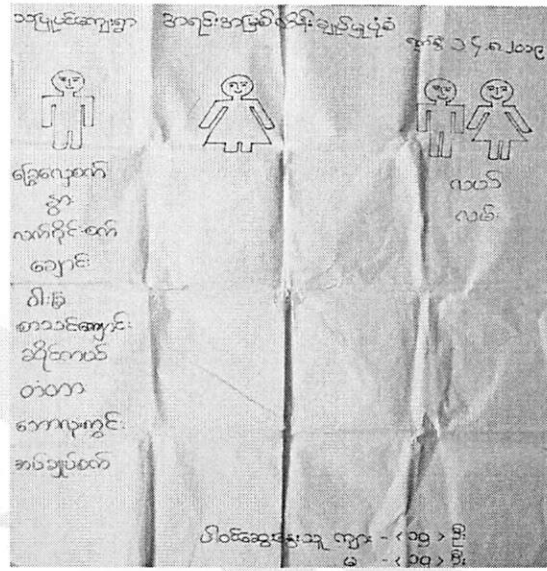 သပြုပင်ကျေးရွာ အရင်းအမြစ်ထိန်းချုပ်မှုပုံစံ
ရက်စွဲ ၁၄.၈.၂၀၁၉
ခြွေလှေ့စက်
နွား
လက်ကိုင်စက်
ချောင်း
ဝါးခြံ
စာသင်ကျောင်း
ဆိုင်ကယ်
တံတား
ဘောလုံးကွင်း
အပ်ချုပ်စက်
လယ်
လမ်း
ပါဝင်ဆွေးနွေးသူ ကျား - < ၁၅ > ဦး
မ - < ၁၅ > ဦး